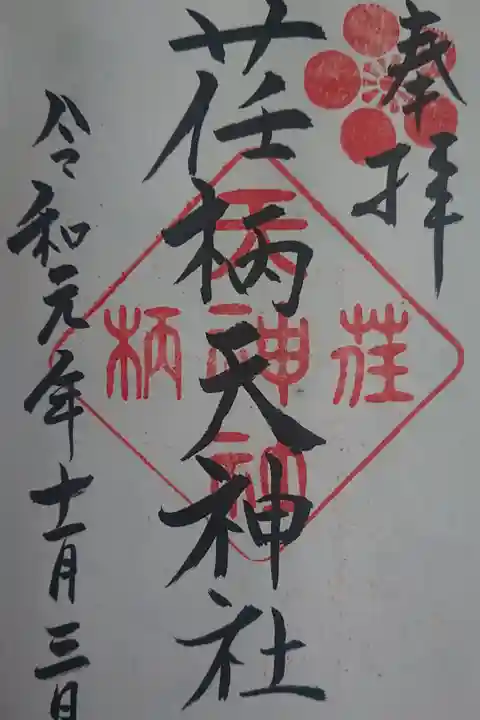 奉拝
荏柄天神社
荏柄天神社
令和元年十一月三日